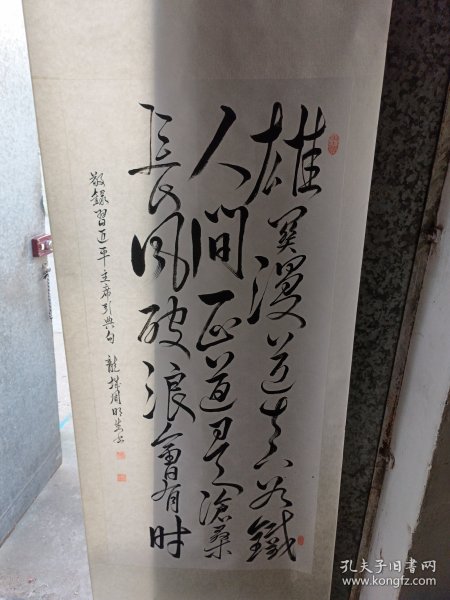 雄关漫道真如铁
人间正道是滄桑
長风破浪會有时
敬録習近平主席引典句 龍城周明生书
孔夫子旧书网
www.kongfz.com